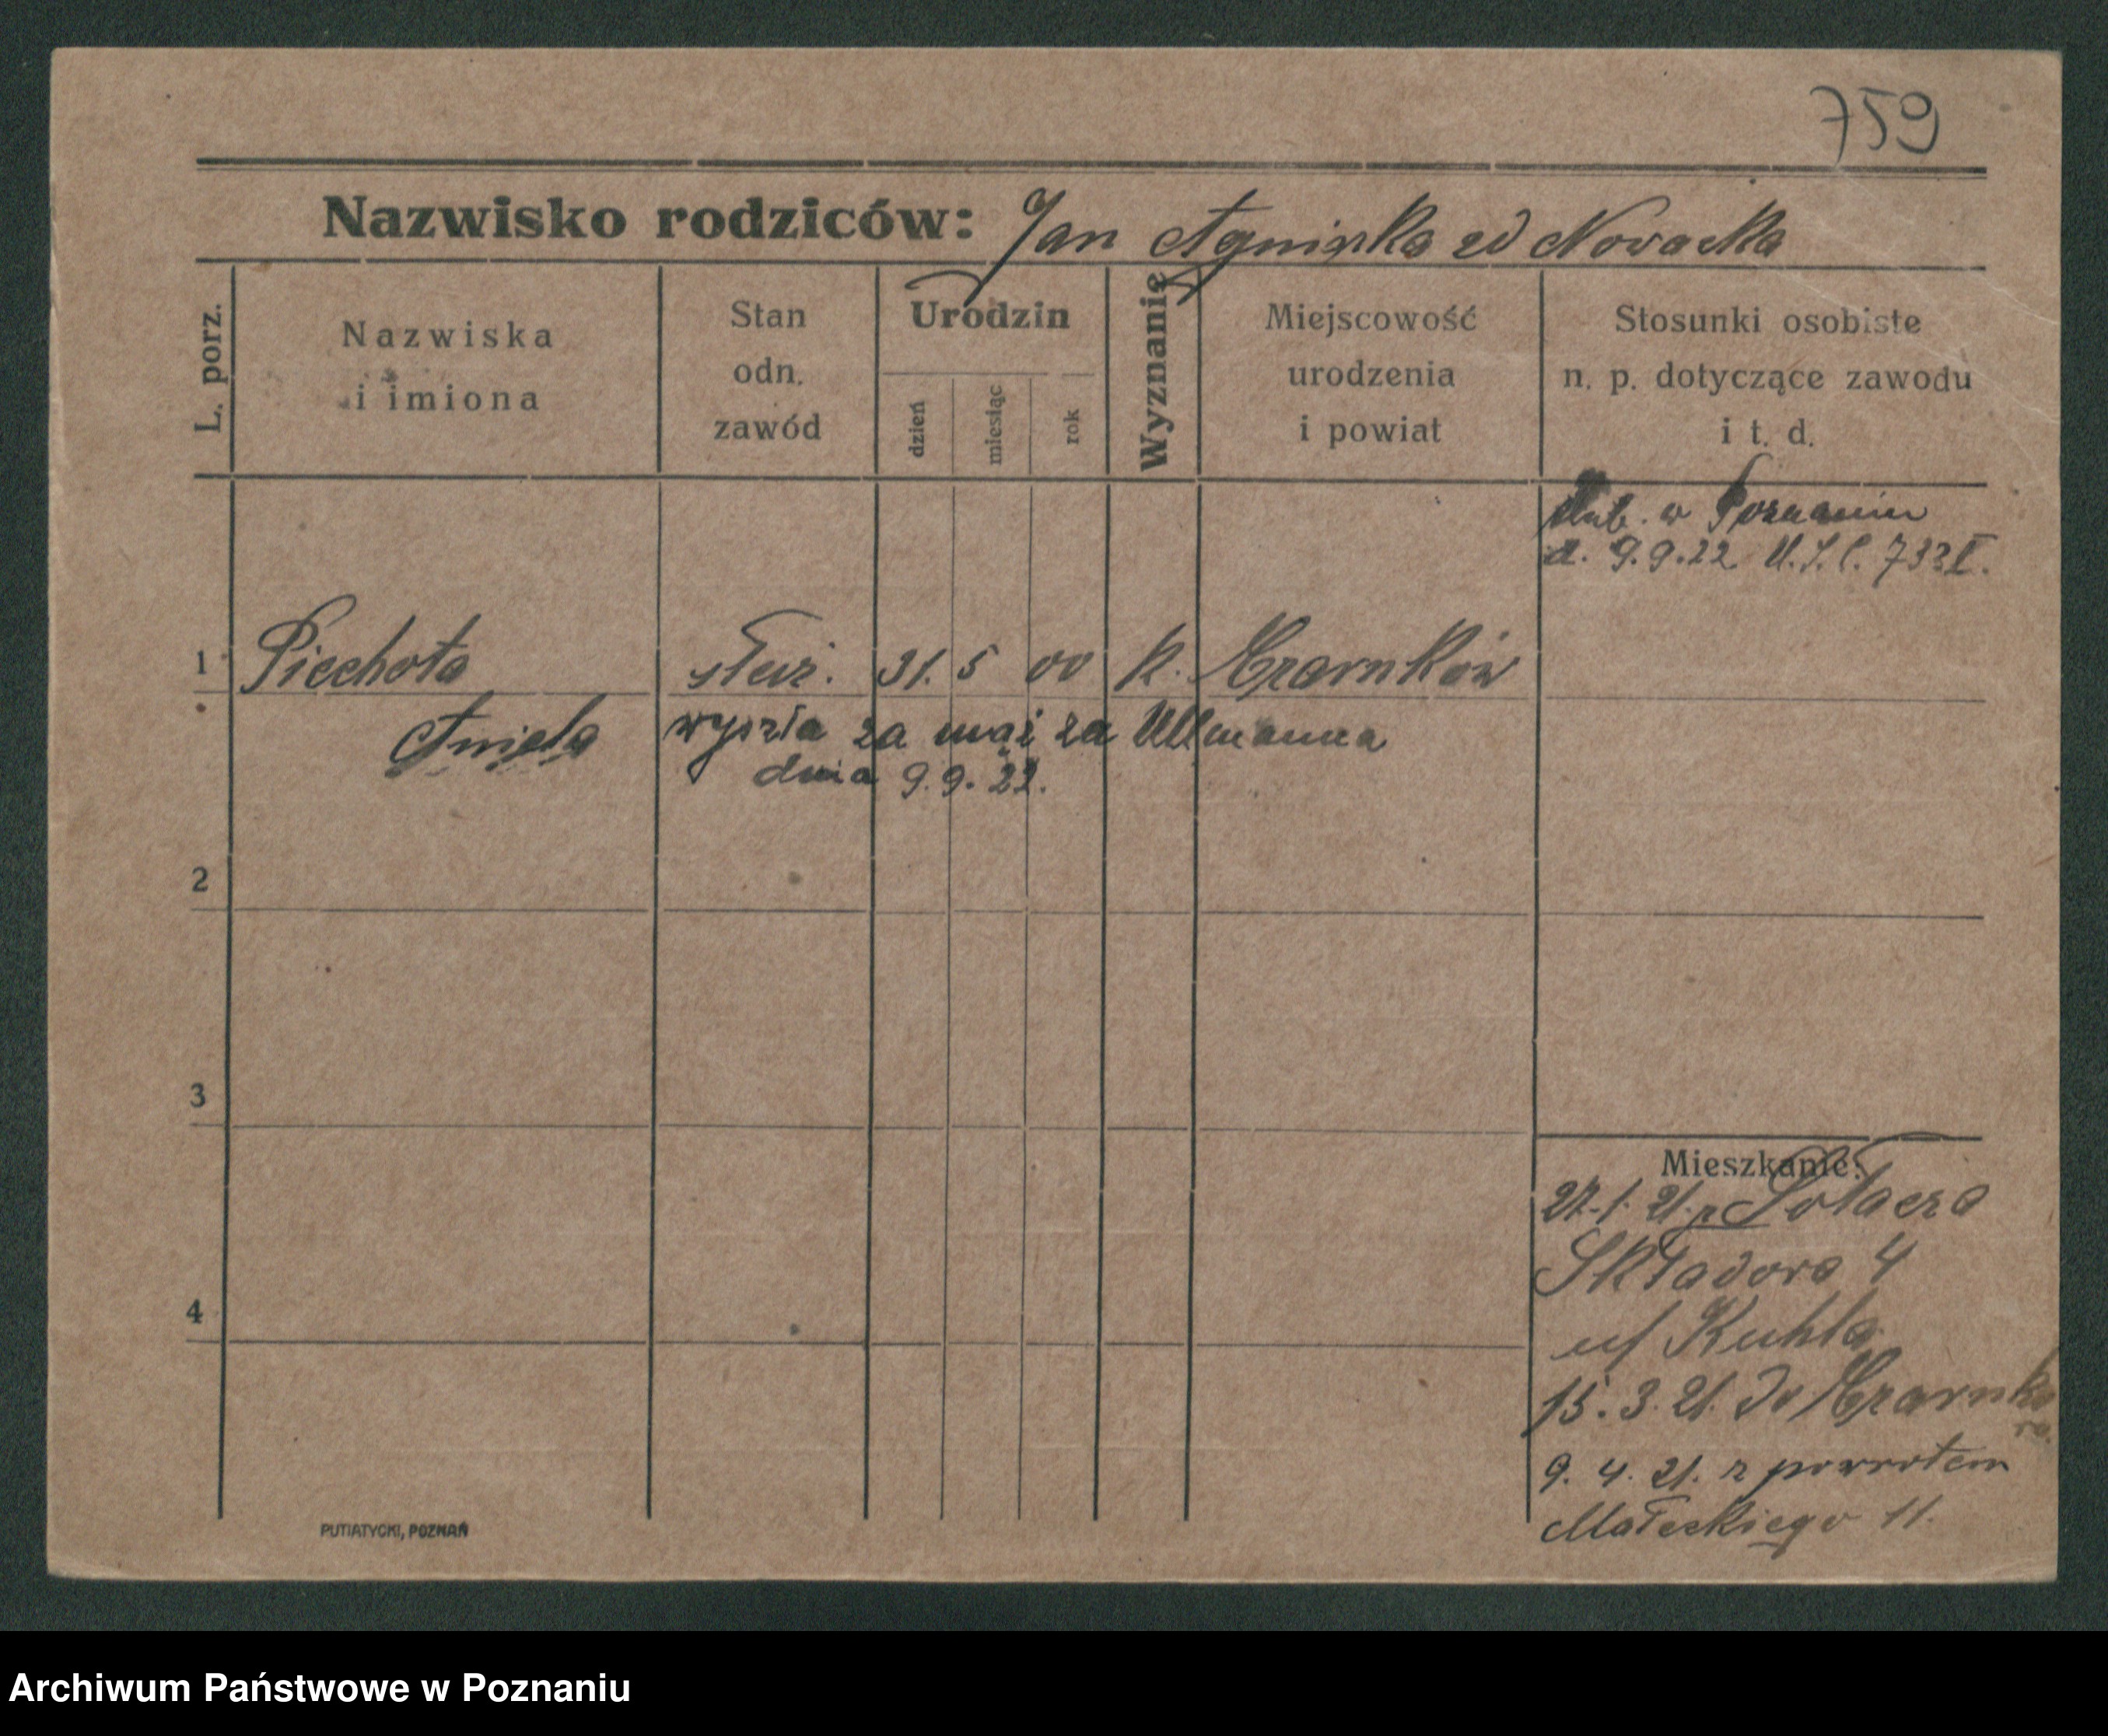 759
Nazwisko rodziców: Jan Agnieszka zd Nowacka
L. porz.
Nazwiska
i imiona
Stan
odn.
zawód
Urodzin
dzień
miesiąc
rok
Wyznanie
Miejscowość
urodzenia
i powiat
Stosunki osobiste
n. p. dotyczące zawodu
i t. d.
ślub. w Poznaniu
d. 9.9.22. U.S.C. 733 I.
1 Piechota służ. 31. 5 00 k. Czarnków
Aniela wyszła za mąż za Ullmanna
dnia 9.9.22.
2
3
4
Mieszkanie:
27.1.21. z Sołacza
Składowa 4
u/ Kuhla
15.3.21. do Czarnko
wa.
9.4.21. z powrotem
Małeckiego 11.
PUTIATYCKI, POZNAŃ
Archiwum Państwowe w Poznaniu